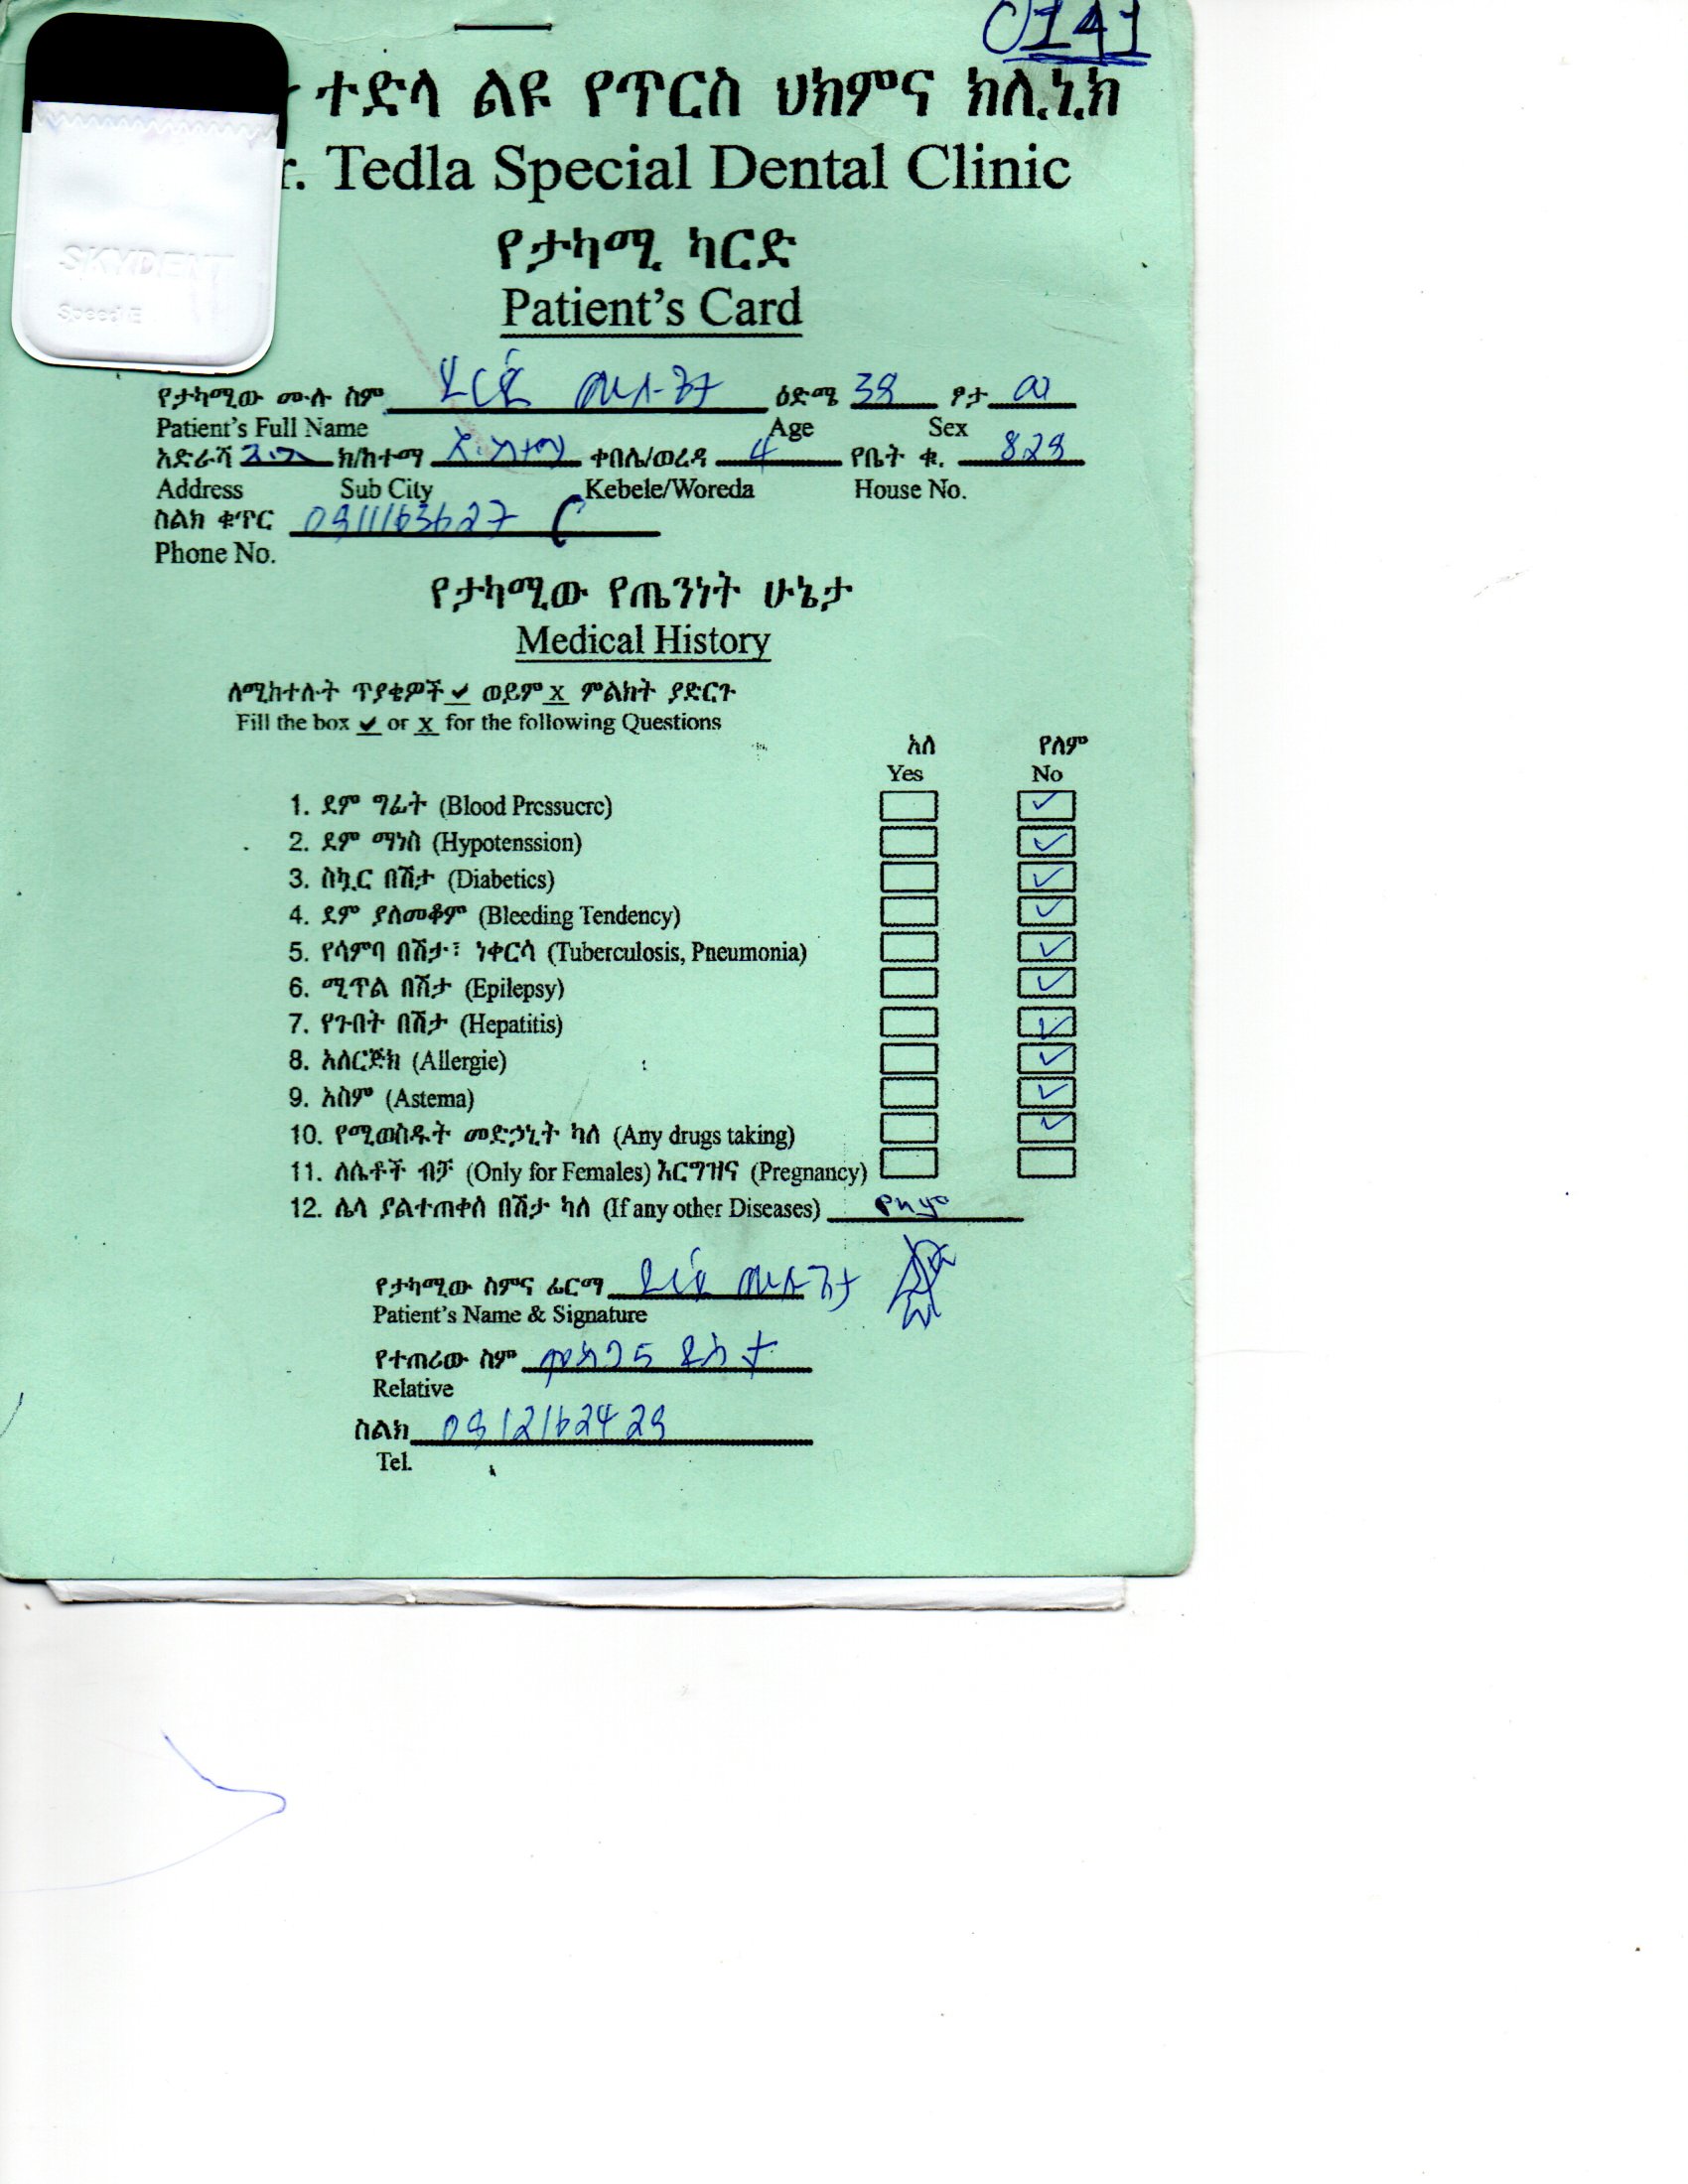 0141
ተድላ ልዩ የጥርስ ህክምና ክሊኒክ
r. Tedla Special Dental Clinic
የታካሚ ካርድ
Patient's Card
SKYDENT
Speed E
የታካሚው ሙሉ ስም ዕድሜ 39 ፆታ ወ
Patient's Full Name Age Sex
አድራሻ አ.አ ክ/ከተማ አ.ከተማ ቀበሌ/ወረዳ 4 የቤት ቁ. 829
Address Sub City Kebele/Woreda House No.
ስልክ ቁጥር 0911163627
Phone No.
የታካሚው የጤንነት ሁኔታ
Medical History
ለሚከተሉት ጥያቄዎች ✓ ወይም x ምልክት ያድርጉ
Fill the box ✓ or x for the following Questions
አለ የለም
Yes No
1. ደም ግፊት (Blood Pressucre) ✓
2. ደም ማነስ (Hypotenssion) ✓
3. ስኳር በሽታ (Diabetics) ✓
4. ደም ያለመቆም (Bleeding Tendency) ✓
5. የሳምባ በሽታ፣ ነቀርሳ (Tuberculosis, Pneumonia) ✓
6. ሚጥል በሽታ (Epilepsy) ✓
7. የጉበት በሽታ (Hepatitis) ✓
8. አለርጅክ (Allergie) ✓
9. አስም (Astema) ✓
10. የሚወስዱት መድኃኒት ካለ (Any drugs taking) ✓
11. ለሴቶች ብቻ (Only for Females) እርግዝና (Pregnancy)
12. ሌላ ያልተጠቀሰ በሽታ ካለ (If any other Diseases) የለም
የታካሚው ስምና ፊርማ
Patient's Name & Signature
የተጠሪው ስም ደስታ
Relative
ስልክ 0912162429
Tel.